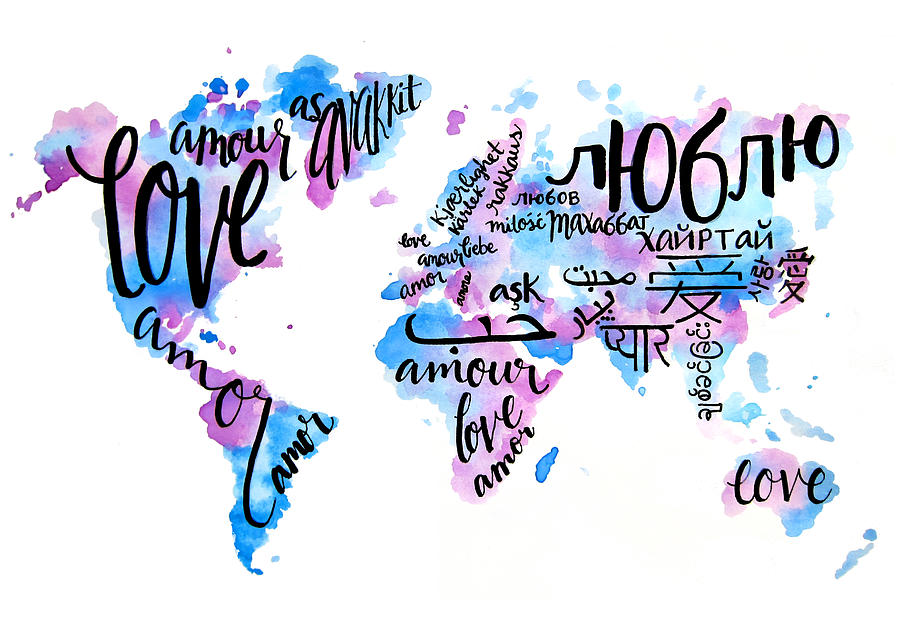 amour
asavakkit
love
amor
amor
love
amour
liebe
amor
amore
kjærlighet
kärlek
rakkaus
люблю
любов
miłość
махаббат
хайртай
aşk
محبت
پیار
حب
प्यार
爱
사랑
amour
love
amor
love